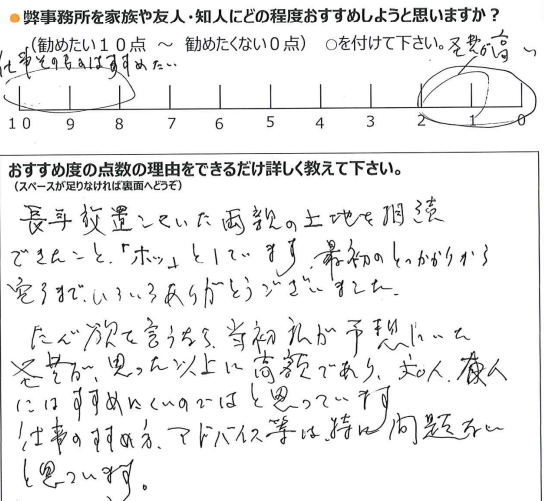 ●弊事務所を家族や友人・知人にどの程度おすすめしようと思いますか？
（勧めたい１０点 ～ 勧めたくない０点） ○を付けて下さい。 老費が高い
仕事そのものはすすめたい
10 9 8 7 6 5 4 3 2 1 0
おすすめ度の点数の理由をできるだけ詳しく教えて下さい。
（スペースが足りなければ裏面へどうぞ）
長年放置していた両親の土地を相続
できたこと、「ホッ」としています。最初のとっかかりから
完了まで、いろいろありがとうございました。
ただ欲を言うなら、当初私が予想していた
が、思った以上に高額であり、知人、友人
にはすすめにくいのではと思っています
仕事のすすめ方、アドバイス等は、特に問題ない
と思っています。